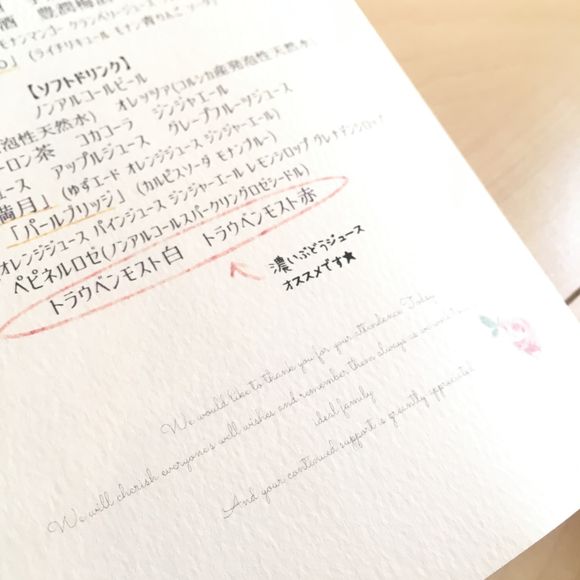 酒 豊潤梅酒
モナンマンゴー クランベリージュース
」(ライチリキュール モナン青りんご ソーダ)
【ソフトドリンク】
ノンアルコールビール
泡性天然水) オレッツァ(コルシカ産発泡性天然水)
ーロン茶 コカコーラ ジンジャエール
ュース アップルジュース グレープフルーツジュース
満月」(ゆずエード オレンジジュース ジンジャーエール)
「パールブリッジ」(カルピスソーダ モナンブルー)
オレンジジュース パインジュース ジンジャーエール レモンシロップ グレナデンシロップ
ペピネルロゼ(ノンアルコールスパークリングロゼシードル)
トラウベンモスト白 トラウベンモスト赤
濃いぶどうジュース
オススメです★
We would like to thank you for your attendance Today
We will cherish everyone's well wishes and remember them always as we
ideal family
And your continued support is greatly appreciated